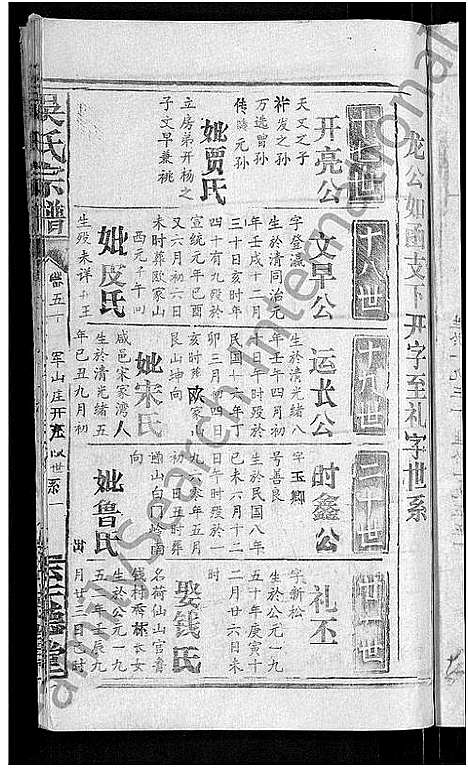 龙公如函支下开字至礼字世系
十七世
开亮公
天文之子
祚发之孙
万选曾孙
传 元孙
妣贾氏
立房弟开杨之
子文早兼祧
十八世
文早公
字登瀛
生於清同治元
年壬戌十二月
三十日亥时年
四十有九殁於
宣统元年己酉
又六月初六日
未时葬欧家山
酉元千年
妣皮氏
生殁未详
十九世
运长公
生於清光绪八
年壬午四月初
一日午时殁於
民国十六年丁
卯三月初四日
亥时葬欧家
艮山坤向
妣宋氏
咸邑宋家湾人
生於清光绪五
年己丑九月初
二十世
时鑫公
字玉卿
号善良
生於民国八年
己未六月十二
日午时殁於一
九六零年五月
初一日丑时葬
山白门岭南
向
妣鲁氏
廿一世
礼丕
字新松
生於公元一九
五十年庚寅十
二月廿六日未
时
娶钱氏
名荷仙山官
钱村秀林长女
生於公元一九
五二年壬辰九
月廿三日巳时
吴氏宗谱
卷五
军山庄开亮以世系
annySearch International